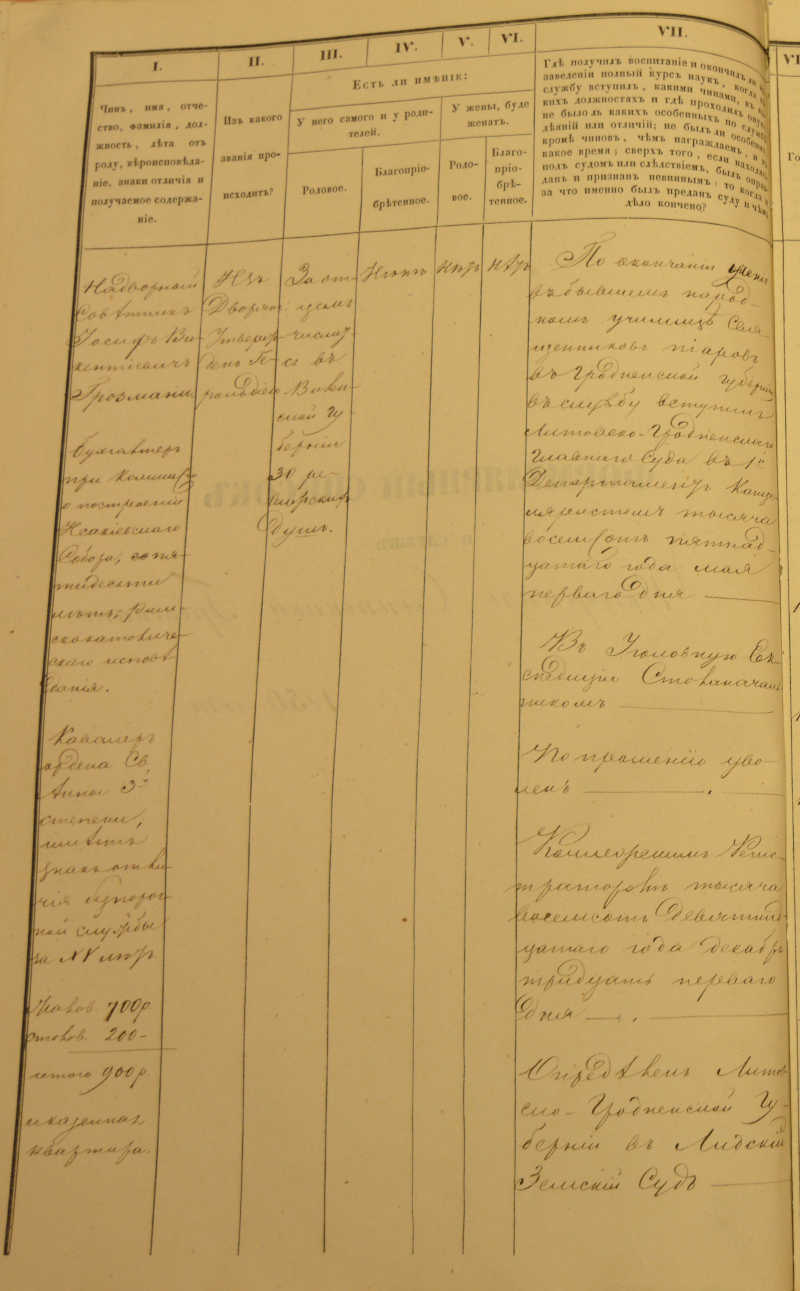 I.
II.
III.
IV.
V.
VI.
VII.
Чинъ, имя, отче-
ство, фамилія, дол-
жность, лѣта отъ
роду, вѣроисповѣда-
ніе, знаки отличія и
получаемое содержа-
ніе.
Изъ какого
званія про-
исходитъ?
Есть ли имѣніе:
У него самого и у роди-
телей.
У жены, буде
женатъ.
Родовое.
Благопріо-
брѣтенное.
Родо-
вое.
Благо-
пріо-
брѣ-
тенное.
Гдѣ получилъ воспитаніе и окончилъ ли
заведеніи полный курсъ наукъ, когда
службу вступилъ, какими чинами, въ
кихъ должностяхъ и гдѣ проходилъ
не было ль какихъ особенныхъ по служ
дѣяній или отличій; не былъ ли особенно
кромѣ чиновъ, чѣмъ награждаемъ, и въ
какое время; сверхъ того, если находил
подъ судомъ или слѣдствіемъ, былъ оправ
данъ и признанъ невиннымъ, то когда и
за что именно былъ преданъ суду и чѣмъ
дѣло кончено?
Надворный
Совѣтникъ
Іосифъ Ви-
кентіевичъ
Гросманъ.
Бухгалтеръ
при Коммис
о построеніи
Исакіевскаго
Собора, 
лѣтъ, римс
кокатоличе-
скаго исповѣ
данія.
Кавалеръ
ордена Св.
Анны 3й
степени,
имѣетъ
знакъ отли-
чія безпороч-
ной службы
за XV лѣтъ
Жалов 700р
столов. 200-
итого 900р.
и казенная
квартира.
Изъ
Дворянъ
За от-
цемъ
числит
ся въ
ской Гу
берніи
30 ре-
визскихъ
душъ.
Нѣтъ
Нѣтъ
Нѣтъ
По окончаніи учені
въ бывшемъ
номъ училищѣ Свя-
щенниковъ піаровъ
въ Гродненской Губерніи
въ службу вступилъ
Литовско-Гродненскаго
Главнаго Суда въ 1й
Департаментъ Канце
ляристомъ тысяча
восемьсотъ пятнад-
цатаго года мая
перваго дня
Въ Уголовную Эк-
спедицію Столоначаль
никомъ
По прошенію уво-
ленъ
Коллежскимъ Регис-
траторомъ тысяча
восемьсотъ девятнад-
цатаго года Декабря
тридцать перваго
дня
Опредѣленъ Литов
ско-Гродненской Гу-
берніи въ Лидскій
Земскій Судъ